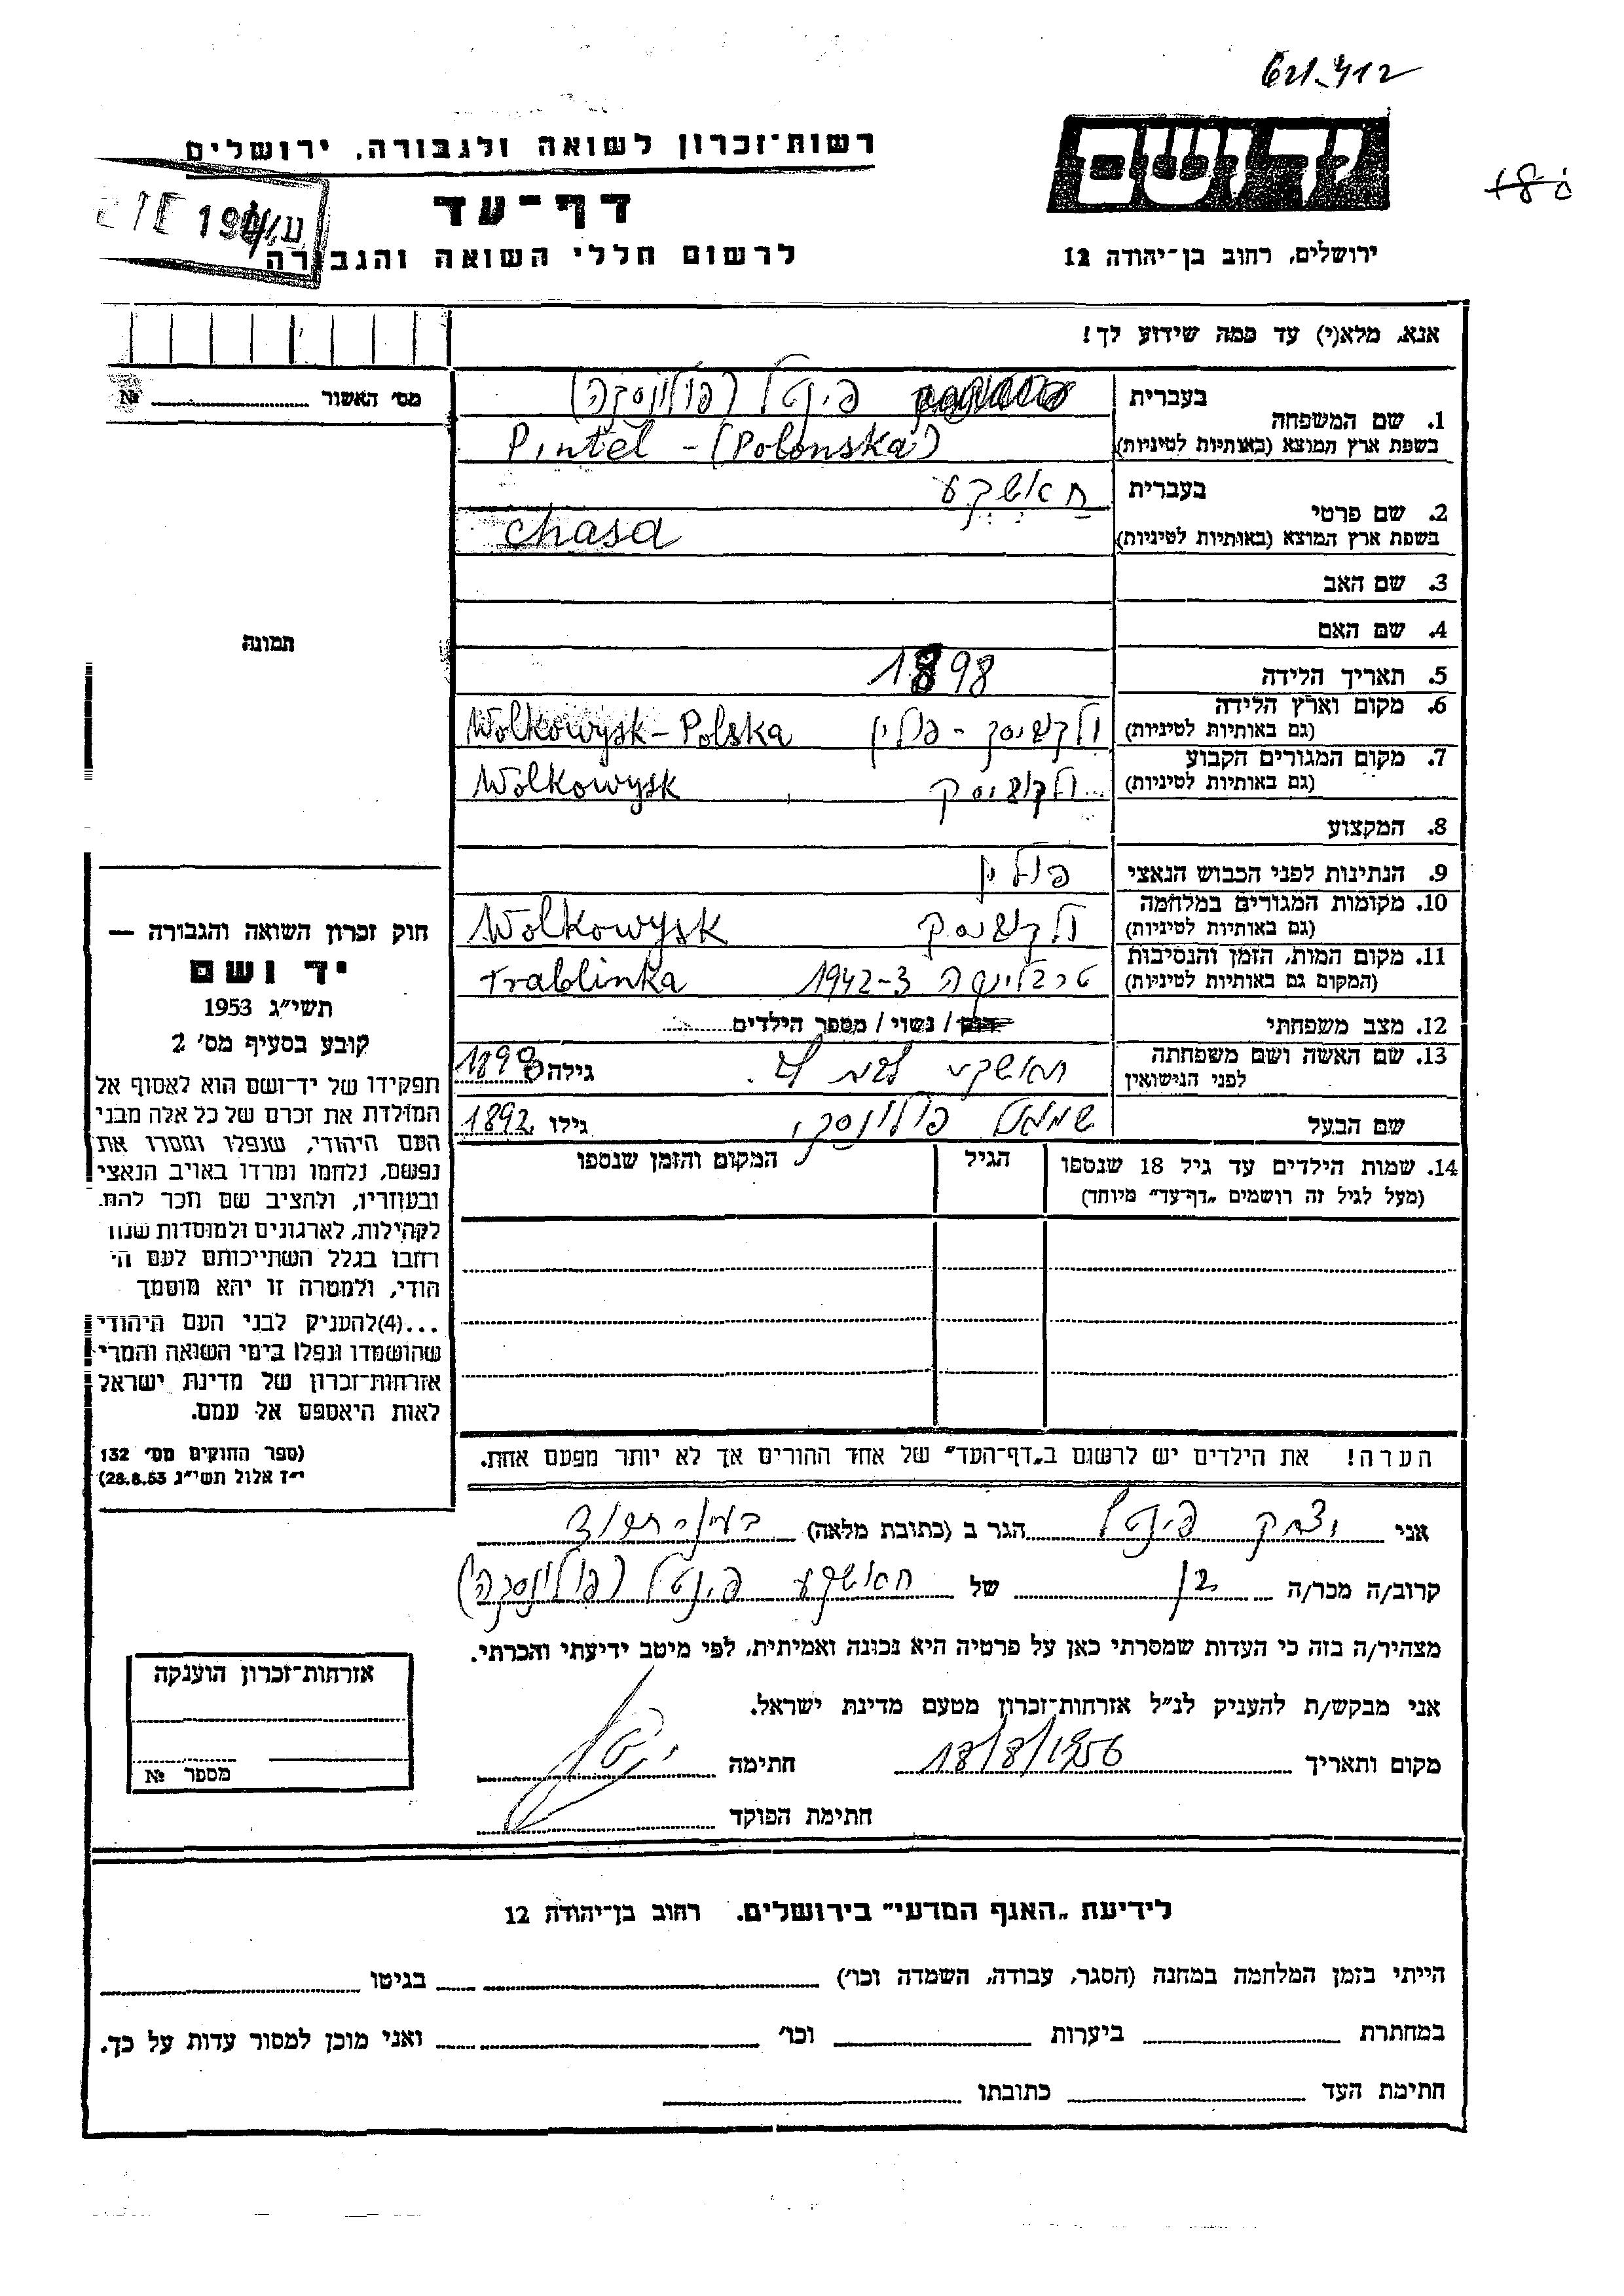 621.412
רשות־זכרון לשואה ולגבורה, ירושלים
דף־עד
לרשום חללי השואה והגבורה
יד ושם
ירושלים, רחוב בן־יהודה 12
180
אנא, מלא(י) עד כמה שידוע לך!
מס' האשור № 
בעברית פינטל (פולונסקה)
1. שם המשפחה
בשפת ארץ המוצא (באותיות לטיניות) Pintel - (Polonska)
בעברית חאשקע
2. שם פרטי
בשפת ארץ המוצא (באותיות לטיניות) chasa
3. שם האב
4. שם האם
תמונה
5. תאריך הלידה 1898
6. מקום וארץ הלידה
(גם באותיות לטיניות) ולקוויסק - פולין Wolkowysk - Polska
7. מקום המגורים הקבוע
(גם באותיות לטיניות) ולקוויסק Wolkowysk
8. המקצוע
9. הנתינות לפני הכבוש הנאצי פולין
10. מקומות המגורים במלחמה
(גם באותיות לטיניות) ולקוויסק Wolkowysk
11. מקום המות, הזמן והנסיבות
(המקום גם באותיות לטיניות) טרבלינקה 1942-3 Trablinka
12. מצב משפחתי רווק / נשוי / מספר הילדים
13. שם האשה ושם משפחתה
לפני הנישואין חאשקע גילה 1898
שם הבעל שמואל פולונסקי גילו 1892
14. שמות הילדים עד גיל 18 שנספו הגיל המקום והזמן שנספו
(מעל לגיל זה רושמים „דף־עד” מיוחד)
הערה! את הילדים יש לרשום ב„דף־העד” של אחד ההורים אך לא יותר מפעם אחת.
חוק זכרון השואה והגבורה —
יד ושם
תשי״ג 1953
קובע בסעיף מס' 2
תפקידו של יד־ושם הוא לאסוף אל
המולדת את זכרם של כל אלה מבני
העם היהודי, שנפלו ומסרו את
נפשם, נלחמו ומרדו באויב הנאצי
ובעוזריו, ולהציב שם וזכר להם,
לקהילות, לארגונים ולמוסדות שנח
רחבו בגלל השתייכותם לעם הי
הודי, ולמטרה זו יהא מוסמך
...(4)להעניק לבני העם היהודי
שהושמדו ונפלו בימי השואה והמרי
אזרחות־זכרון של מדינת ישראל
לאות היאספם אל עמם.
(ספר החוקים מס' 132
י״ז אלול תשי״ג 28.8.53)
אני יצחק פינטל הגר ב (כתובת מלאה) בעין־חרוד
קרוב/ה מכר/ה בן של חאשקע פינטל (פולונסקה)
מצהיר/ה בזה כי העדות שמסרתי כאן על פרטיה היא נכונה ואמיתית, לפי מיטב ידיעתי והכרתי.
אני מבקש/ת להעניק לנ״ל אזרחות־זכרון מטעם מדינת ישראל.
מקום ותאריך 18/8/1956 חתימה
חתימת הפוקד
אזרחות־זכרון הוענקה
מספר №
לידיעת „האגף המדעי” בירושלים. רחוב בן־יהודה 12
הייתי בזמן המלחמה במחנה (הסגר, עבודה, השמדה וכו') בגיטו
במחתרת ביערות וכו' ואני מוכן למסור עדות על כך.
חתימת העד כתובתו